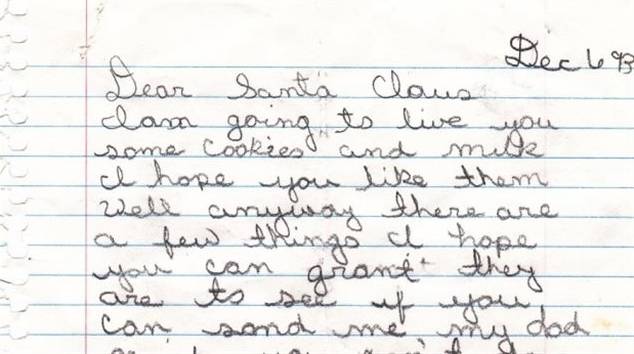 Dec 6 93
Dear Santa Claus
I am going to live you
some cookies and milk
I hope you like them
well anyway there are
a few things I hope
you can grant they
are to see if you
can sand me my dad